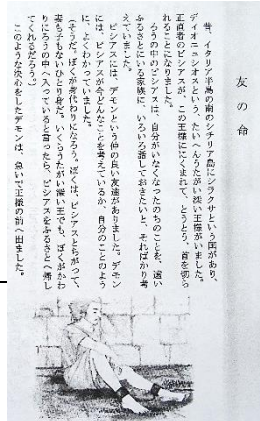 友の命
昔、イタリア半島の南のシチリア島にシラクサという国があり、
ディオニュシオスという、たいへんうたがい深い王様がいました。
正直者のピシアスが、この王様ににくまれて、とうとう、首を切ら
れることになりました。
ろうの中のピシアスは、自分がいなくなったのちのことを、遠い
ふるさとにいる家族に、いろいろ話しておきたいと、そればかり考
えていました。
ピシアスには、デモンという仲の良い友達がありました。デモン
には、ピシアスが今どんなことを考えているか、自分のことのよう
に、よくわかっていました。
(そうだ。ぼくが身代わりになろう。ぼくは、ピシアスとちがって、
妻も子もないひとり身だ。いくらうたがい深い王でも、ぼくがかわ
りにろうの中へ入っていると言ったら、ピシアスをふるさとへ帰し
てくれるだろう。)
このような決心をしたデモンは、急いで王様の前へ出ました。